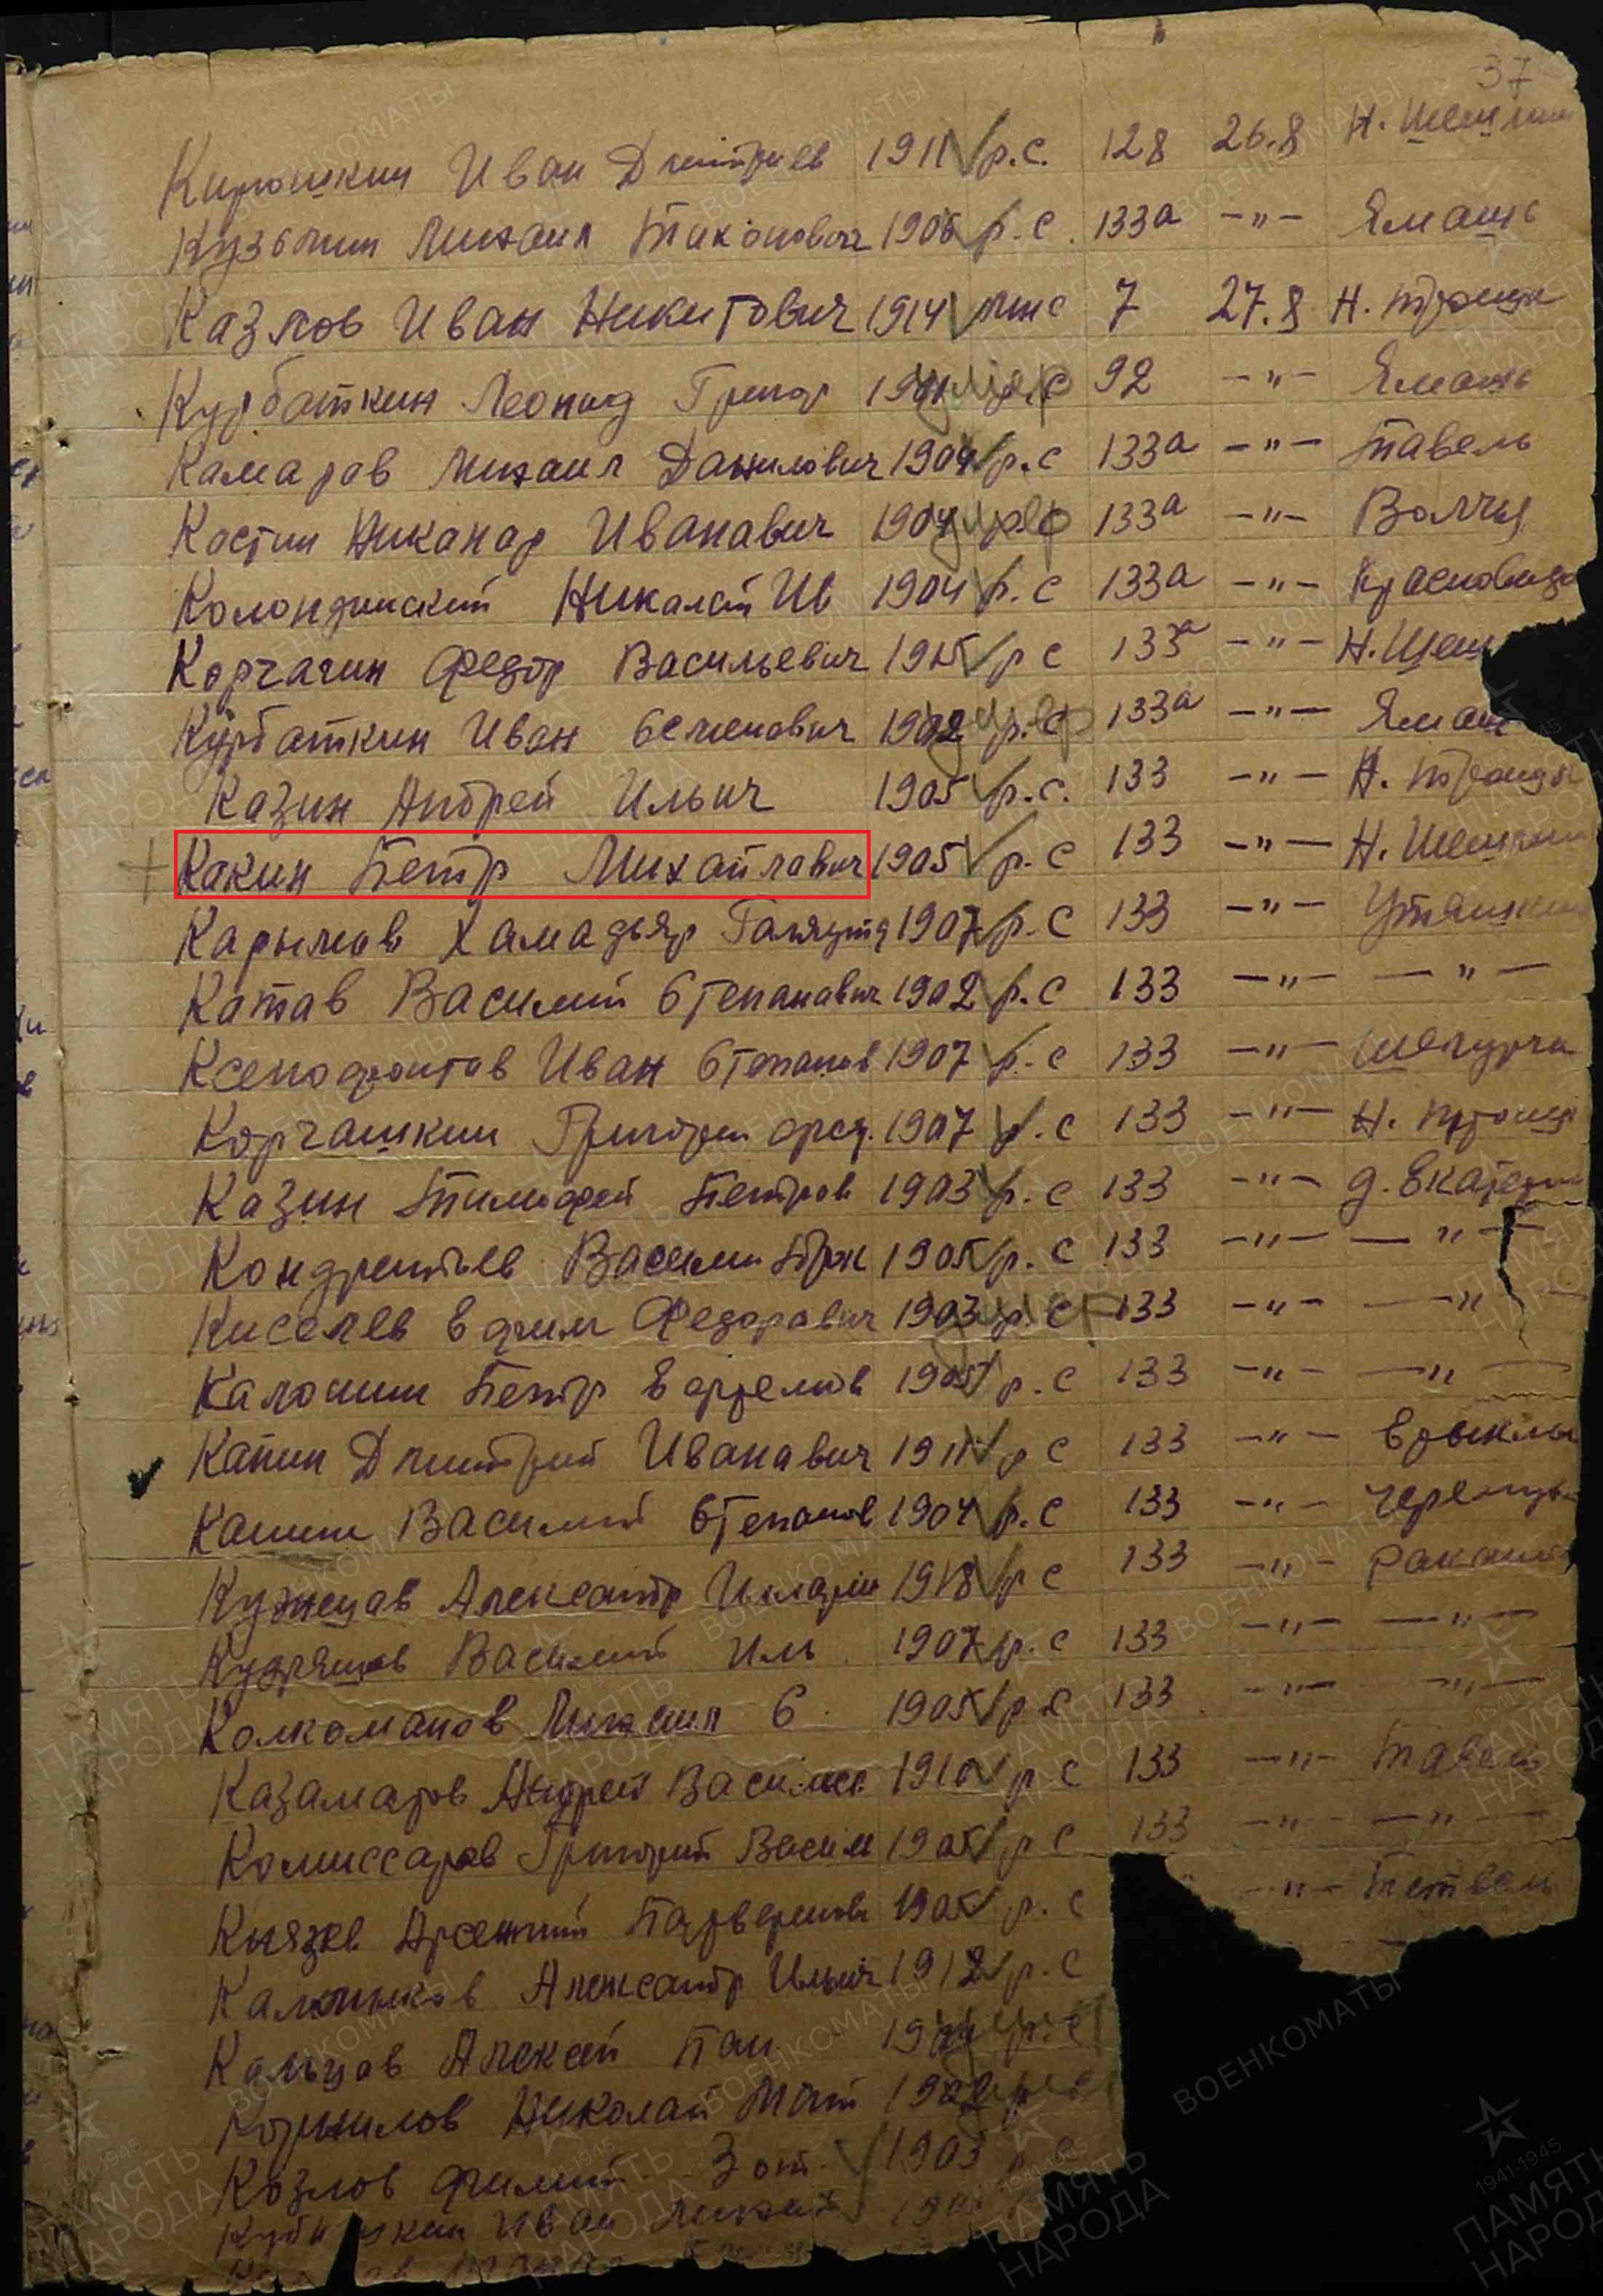 37
Кирюшкин Иван Дмитриев 1911 р.с. 128 26.8 Н. Шешми
Кузьмин Михаил Тихонович 1906 р.с. 133а -"- Ямашь
Казлов Иван Никитович 1914 мтс 7 27.8 Н. Троицк
Курбаткин Леонид Григор умер 92 -"- Ямашь
Камаров Михаил Данилович 1904 р.с 133а -"- Тавель
Костин Никанар Иванавич 1904 р.с умер 133а -"- Волчья
Колондинский Николай Ив 1904 р.с 133а -"-
Корчагин Федор Васильевич 1915 р с 133а -"- Н.Шеш
Курбаткин Иван Семенович 1902 р.с умер 133а -"- Ямаш
Казин Андрей Ильич 1905 р.с. 133 -"- Н. Троицк
Какин Петр Михайлавич 1905 р.с 133 -"- Н. Шешми
Карымов Хамадьяр 1907 р.с 133 -"- Утяшкин
Катав Василий Степанавич 1902 р.с 133 -"- -"-
Ксенофонтов Иван Степанов 1907 р.с 133 -"- Шегурча
Корчашкин Григорий Фед. 1907 р.с 133 -"- Н. Троицк
Казин Тимофей Петров 1903 р.с 133 -"- д. Екатерин
Кондрентьев Васили 1905 р.с 133 -"- -"-
Киселев Ефим Федоравич 1903 р.с умер 133 -"- -"-
Калошин Петр 1905 р.с 133 -"- -"-
Капин Дмитрий Иванавич 1911 р с 133 -"- Ерыклы
Кашин Василий Степанов 1904 р.с 133 -"-
Кузнецав Александр 1918 р с 133 -"-
Кудряшов Василий Иль 1907 р.с 133 -"- -"-
Колкоманов Михаил С. 1905 р с 133 -"- -"-
Казамаров Андрей Василье 1910 р с 133 -"- Тавель
Комиссаров Григорий Васил 1905 р с 133 -"- -"-
Князев Арсений 1905 р.с -"-
Калинков Александр Ильич 1912 р.с
Кальцав Алексей Пан
Корнилов Николай Мат 1902
Козлов Филип Зот. 1903
Иван Михай